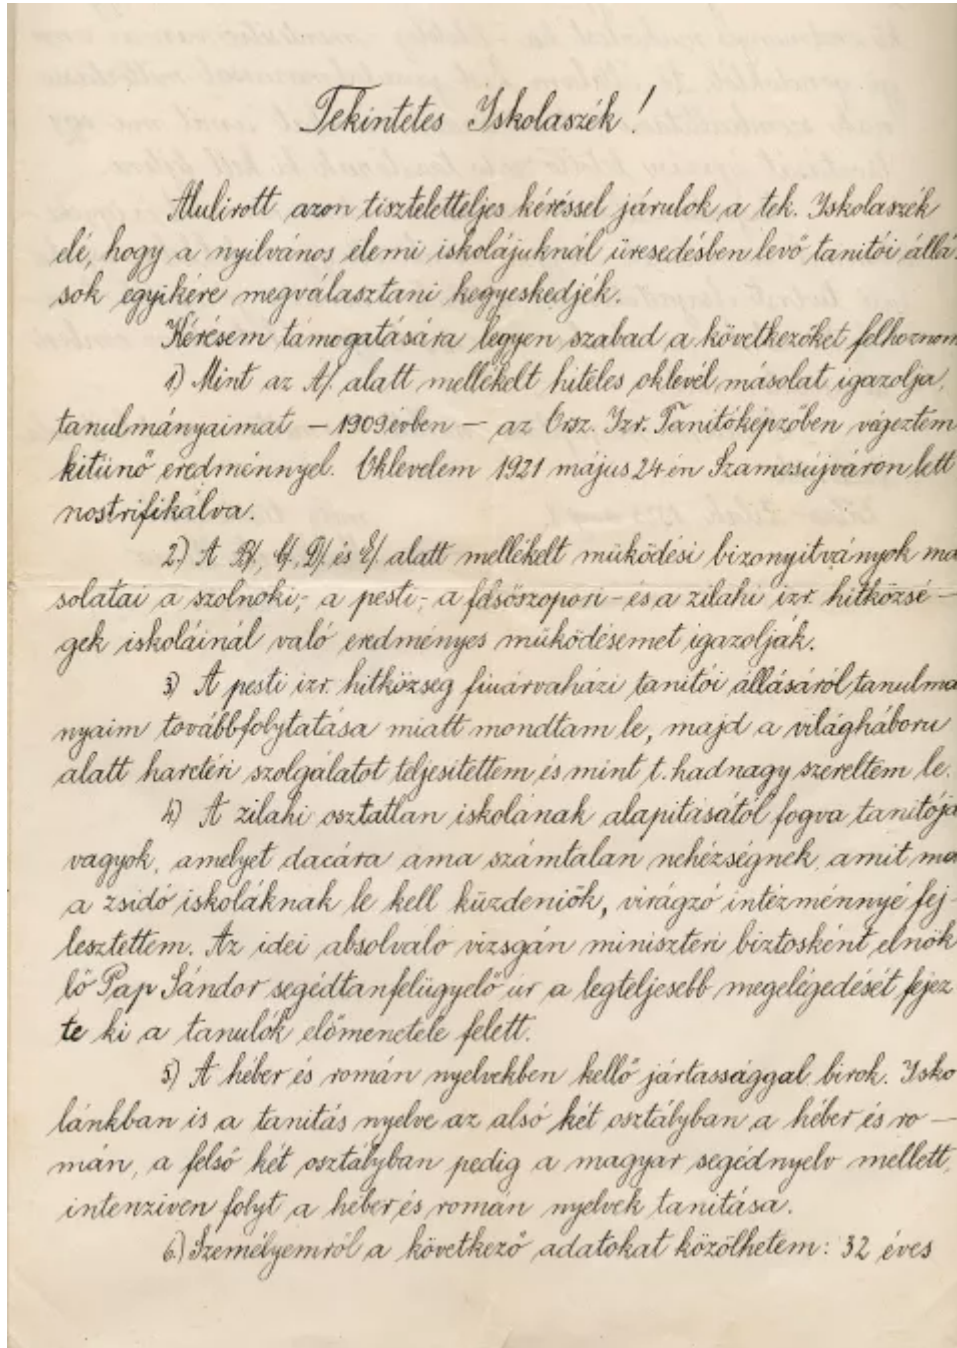 Tekintetes Iskolaszék!
Alulirott azon tiszteletteljes kéréssel járulok a tek. Iskolaszék
elé, hogy a nyilvános elemi iskolájuknál üresedésben levő tanitói állá-
sok egyikére megválasztani kegyeskedjék.
Kérésem támogatására legyen szabad a következőket felhoznom
1) Mint az A/. alatt mellékelt hiteles oklevél másolat igazolja,
tanulmányaimat – 1909 évben – az Orsz. Izr. Tanitóképzőben végeztem
kitünő eredménnyel. Oklevelem 1921 május 24-én Szamosújváron lett
nostrifikálva.
2) A B/., C/., D/. és E/. alatt mellékelt müködési bizonyitványok má
solatai a szolnoki,- a pesti,- a felsőszopori- és a zilahi izr. hitközsé –
gek iskoláinál való eredményes müködésemet igazolják.
3) A pesti izr. hitközség fiuárvaházi tanitói állásáról tanulmá
nyaim továbbfolytatása miatt mondtam le, majd a világháboru
alatt harctéri szolgálatot teljesitettem és mint t. hadnagy szereltem le.
4) A zilahi osztatlan iskolának alapitásától fogva tanitója
vagyok, amelyet dacára ama számtalan nehézségnek, amit ma
a zsidó iskoláknak le kell küzdeniök, virágzó intézménnyé fej-
lesztettem. Az idei absolváló vizsgán miniszteri biztosként elnök
lő Pap Sándor segédtanfelügyelő úr a legteljesebb megelégedését fejez
te ki a tanulók előmenetele felett.
5) A héber és román nyelvekben kellő jártassággal birok. Isko
lánkban is a tanitás nyelve az alsó két osztályban a héber és ro –
mán, a felső két osztályban pedig a magyar segédnyelv mellett,
intenziven folyt a héber és román nyelvek tanitása.
6.) Személyemről a következő adatokat közölhetem: 32 éves